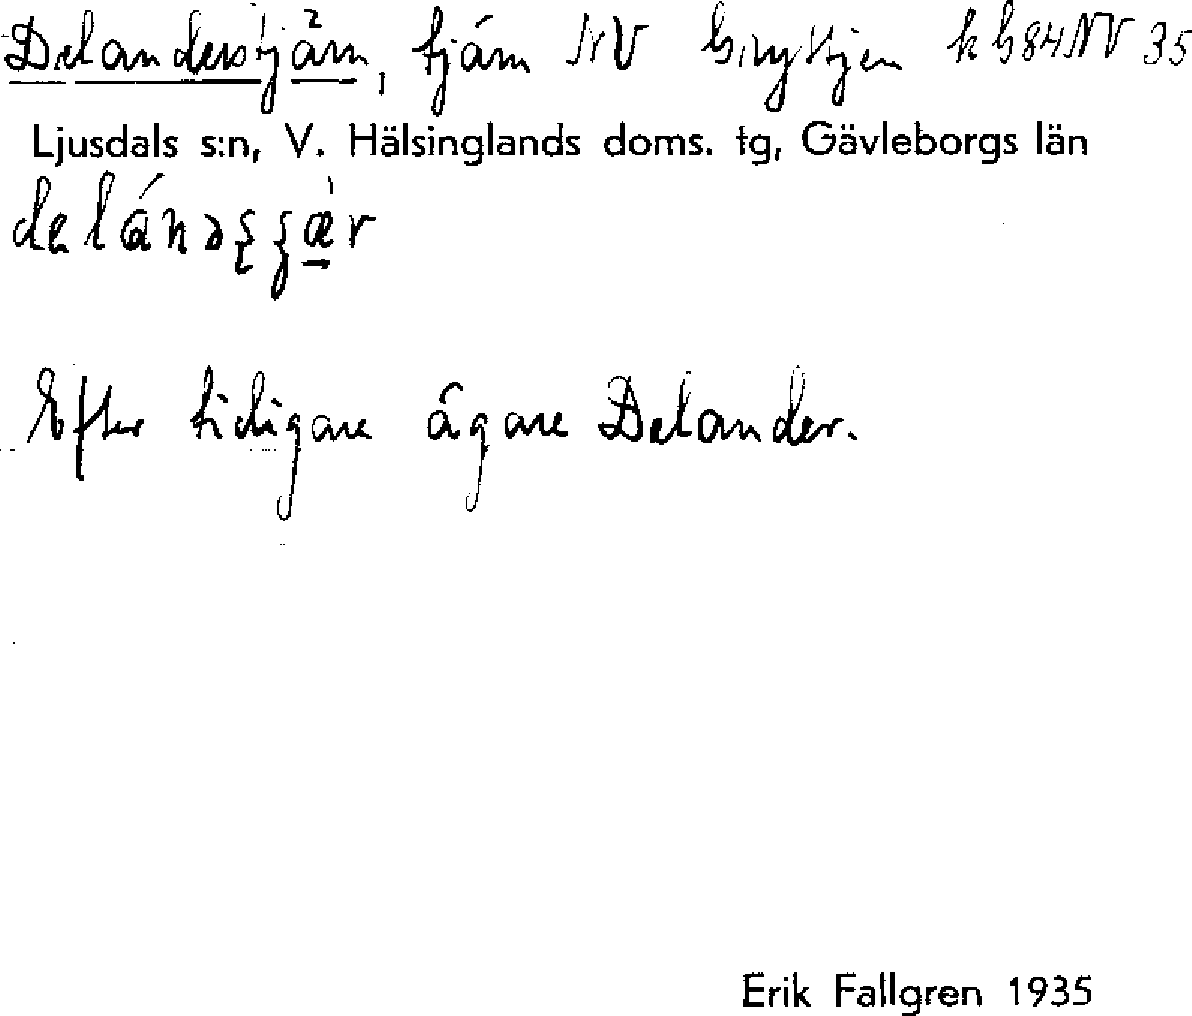 Delanderstjärn, tjärn NV Gryttjen k G84NV 35
Ljusdals s:n, V. Hälsinglands doms. tg, Gävleborgs län
Efter tidigare ägare Delander.
Erik Fallgren 1935